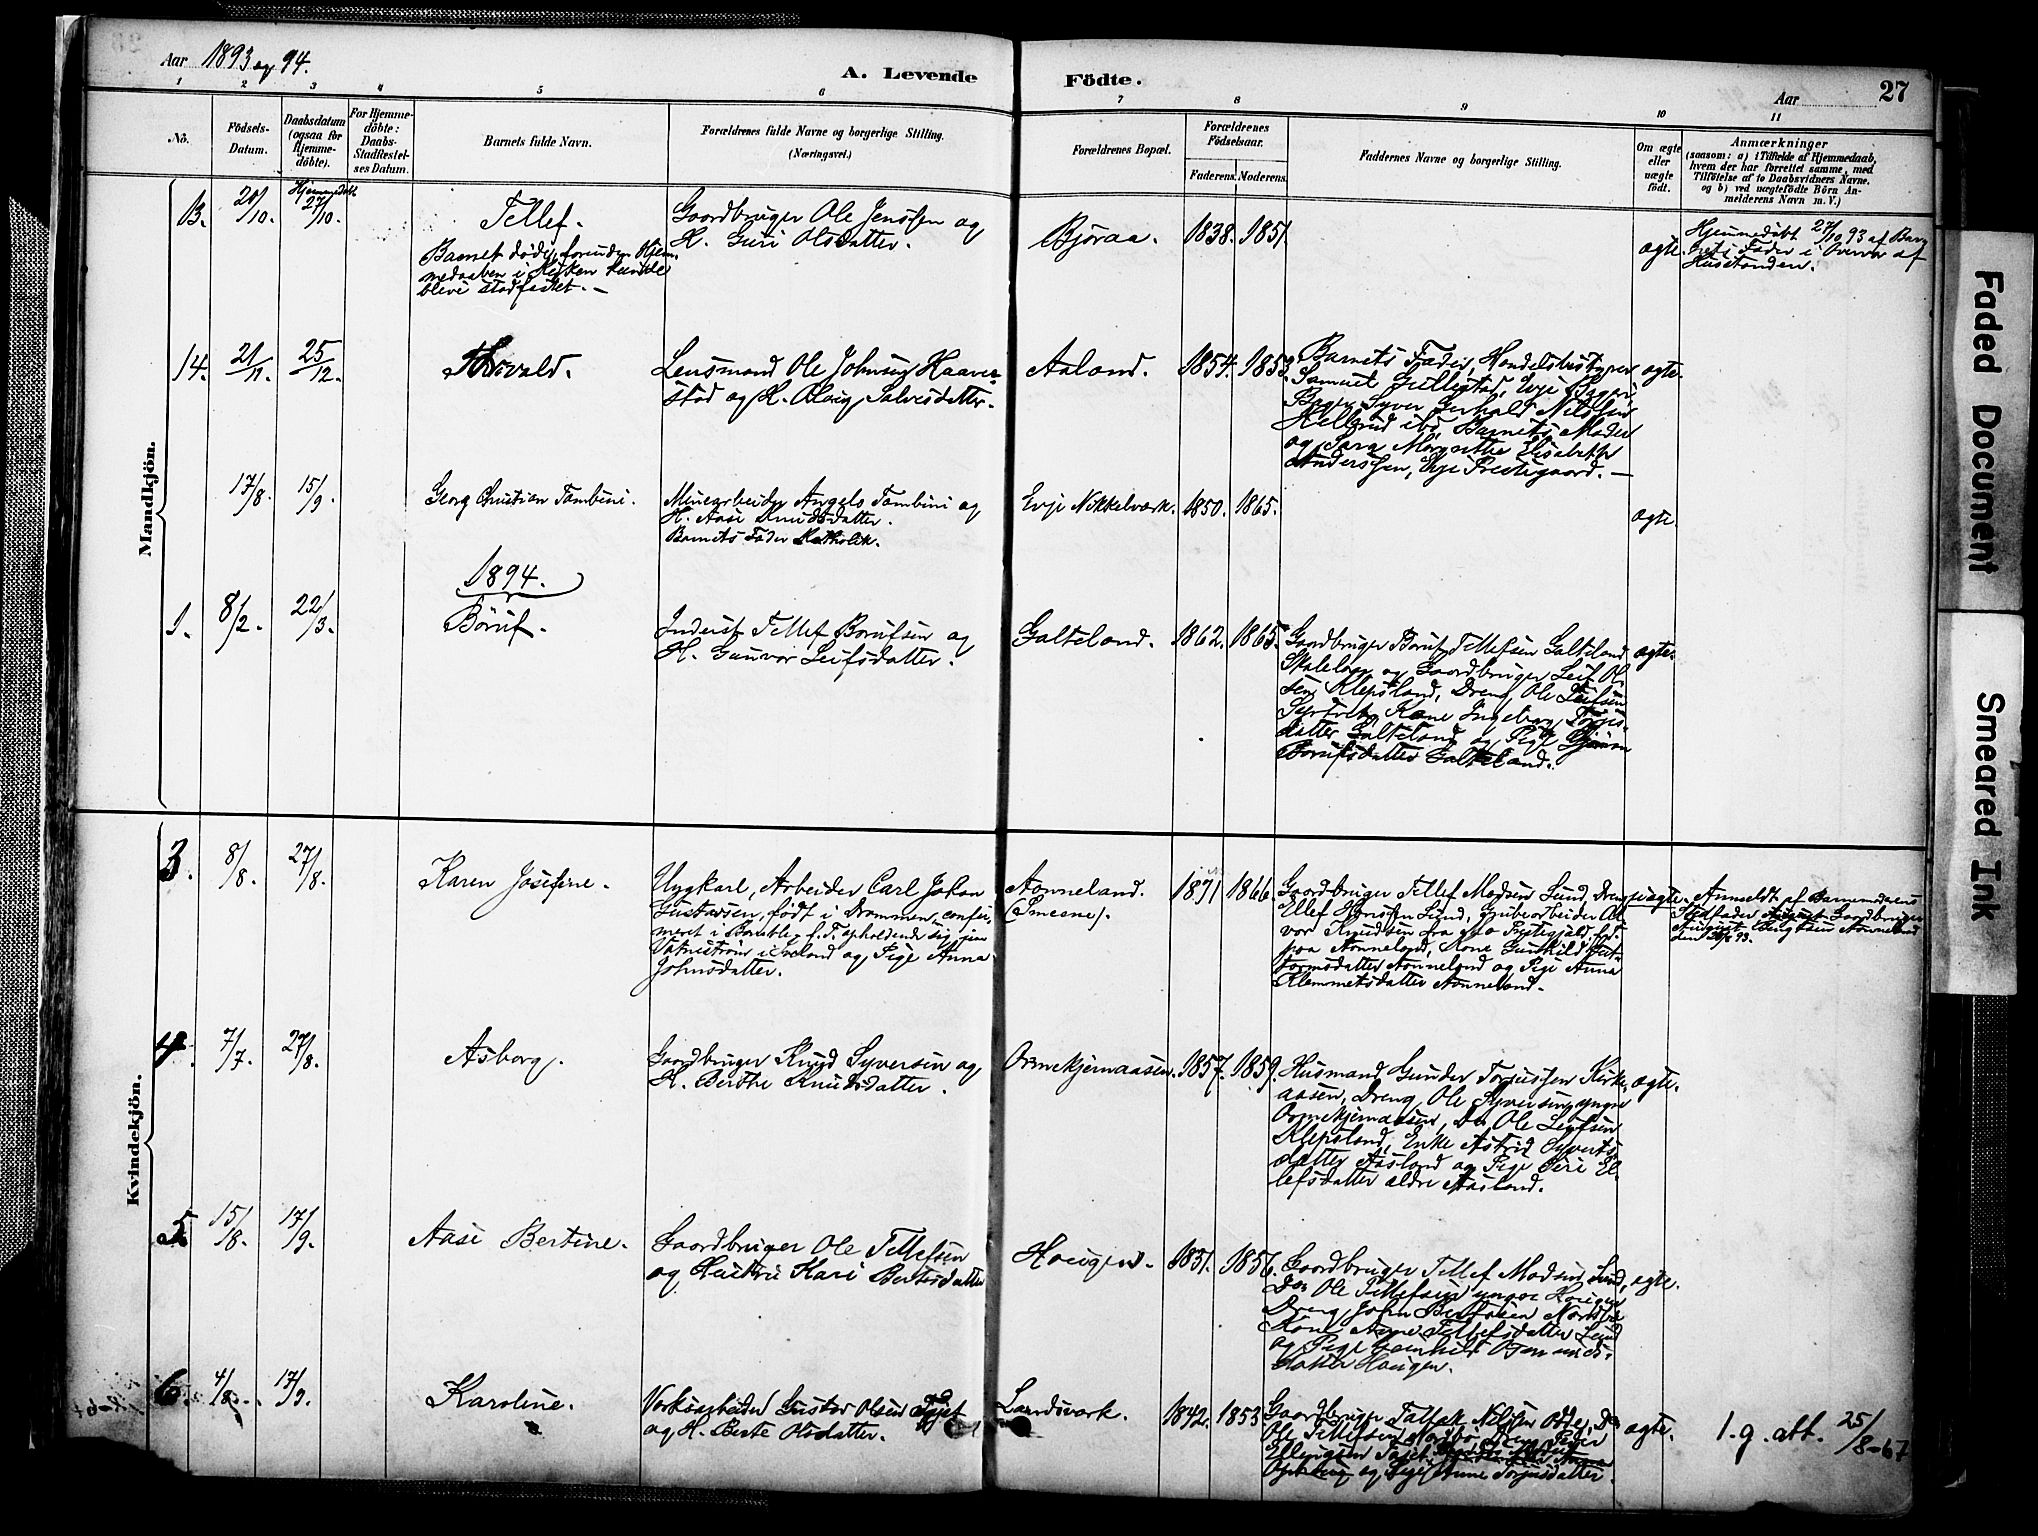 Aar 1893 og 94.
A. Levende Födte.
Aar 27
1 2 3 4 5 6 7 8 9 10 11
No.
Födsels-
Datum.
Daabsdatum
(ogsaa for
Hjemme-
döbte).
For Hjemme-
döbte:
Daabs-
Stadfestel-
ses Datum.
Barnets fulde Navn.
Forældrenes fulde Navne og borgerlige Stilling.
(Næringsvei.)
Forældrenes Bopæl.
Forældrenes
Födselsaar.
Faderens. Moderens.
Faddernes Navne og borgerlige Stilling.
Om ægte
eller
uægte
födt.
Anmærkninger
(saasom: a) i Tilfælde af Hjemmedaab,
hvem der har forrettet samme, med
Tilföielse af to Daabsvidners Navne,
og b) ved uægtefödte Börn An-
melderens Navn m. V.)
Mandkjön.
13. 20/10. Hjemmedöbt 27/10.
Tellef.
Barnet döde, forinden Hjem-
medaaben i Kirken kunde
blive stadfæstet. —
Gaardbruger Ole Jensen og
H. Guri Olsdatter.
Björaa. 1838. 1851.
ægte.
Hjemmedöbt 27/10 93 af Bar-
nets Fader i Overvær af
Husstanden.
14. 21/11. 25/12.
Thorvald.
Lensmand Ole Johnsen Haaver-
stad og H. Olevig Salvesdatter.
Aaland. 1854. 1853.
Barnets Fader, Handelsbestyrer
Samuel Gillestad, Evje
Bager Syver Gerhald Nilssen
ibd, Barnets Moder
og Sara Margrethe Elisabeth
Anderssen, Evje Prestegaard. —
ægte.
17/8. 15/9.
Georg Christian Tambini.
Minearbeider Angelo Tambini og
H. Aase Knudsdatter.
Barnets Fader Katholik.
Evje Nikkelværk. 1850. 1865.
ægte.
1894.
1. 8/2. 22/3.
Böruf.
Inderst Tellef Borufsen og
H. Gunvor Leifsdatter.
Galteland. 1862. 1865.
Gaardbruger Boruf Tellefsen Galteland
og Gaardbruger Leif Ol-
sen Klepsland, Dreng Ole Leifsen
Kone Ingeborg Torjus-
datter Galteland og Pige
Borufsdatter Galteland.
ægte.
Kvindekjön.
3. 8/8. 27/8.
Karen Josefine.
Ungkarl, Arbeider Carl Johan
Gustavsen, födt i Drammen, confir-
meret i Bamble, f. T. opholdende sig paa
Vatneström i Iveland og Pige Anna
Johnsdatter.
Aanneland.
(Smeene).
1871 1866.
Gaardbruger Tellef Madsen Lund, Dreng
Ellef Hansen Lund, Grubearbeider Al-
vor Knudsen fra Prestegjeld, f.t.
paa Aanneland, Kone Gunhild Gut-
tormsdatter Aanneland og Pige Anna
Klemmetsdatter Aanneland.
uægte.
Anmeldt af Barnemoderens
Stedfader Gaardbruger
August Bengtsen Aanneland
den 20/8 93.
4. 7/7. 27/8.
Asborg.
Gaardbruger Knud Syversen og
H. Berthe Knudsdatter.
Ormekjernaasen. 1857. 1859.
Husmand Gunder Torjussen Kirke-
aasen, Dreng Ole Syversen yngre
Ormekjernaasen, Do Ole Leifsen
Klepsland, Enke Astrid Syverts-
datter Aasland og Pige Siri El-
lefsdatter ældre Aasland.
ægte.
5. 15/8. 17/9.
Aase Bertine.
Gaardbruger Ole Tellefsen
og Hustru Kari Bentsdatter
Hougen. 1851. 1856.
Gaardbruger Tellef Madsen Lund,
Do Ole Tellefsen yngre Hougen,
Dreng John Bentsen
Kone Anne Tellefsdatter Lund
og Pige Gunhild Osmunds-
datter Hougen.
ægte.
6. 4/8. 17/9.
Karoline.
Værksarbeider Gustav Olsen
og H. Berte Olsdatter.
Landsværk. 1842. 1853.
Gaardbruger Tallak Nilsen Odde, Do
Ole Tellefsen Dreng Peder
Ellingsen
og Pige Anne Torjusdatter.
ægte.
1. g. att. 25/8-67
Faded Document
Smeared Ink